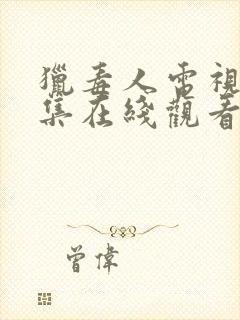 獵毒人電視
集在綫觀看
曾偉